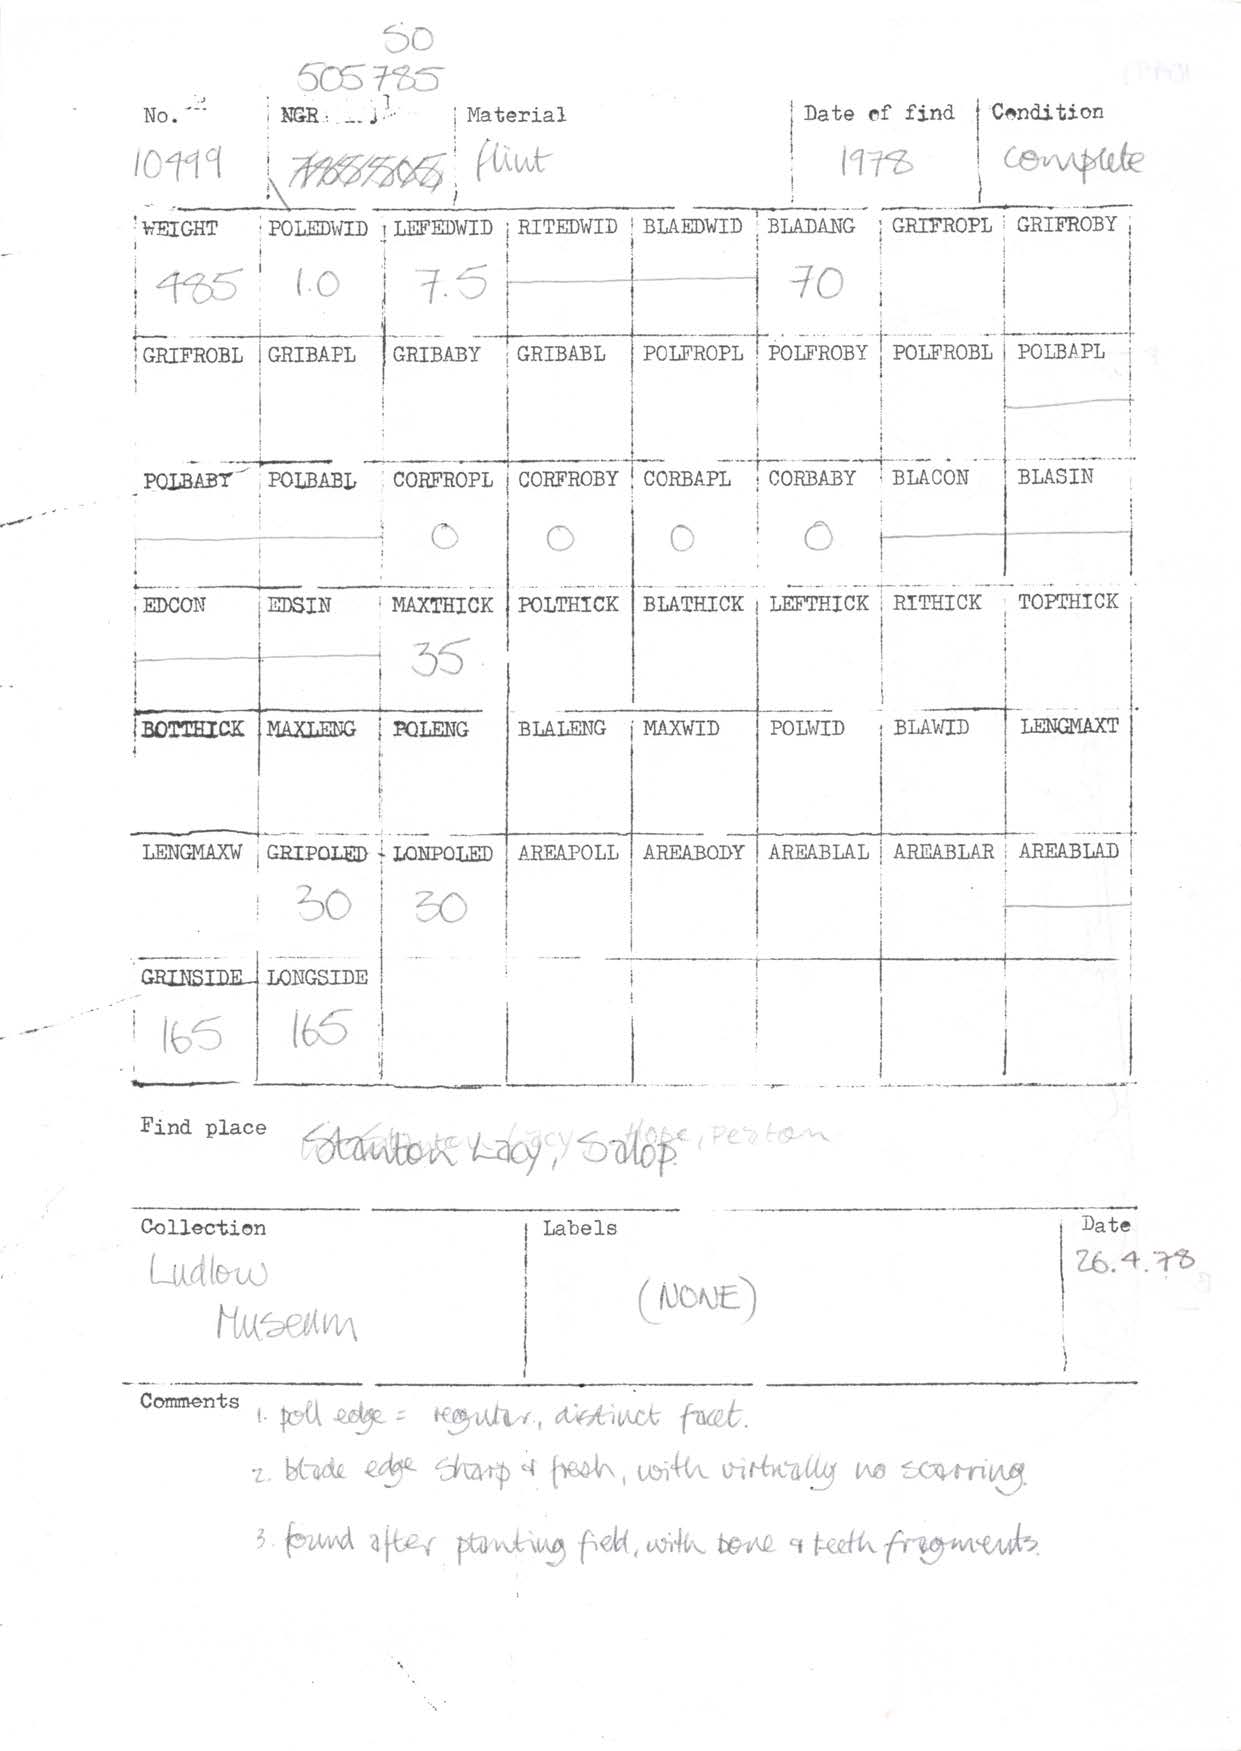 SO
505785
No. NGR Material Date of find Condition
10499 flint 1978 complete
WEIGHT POLEDWID LEFEDWID RITEDWID BLAEDWID BLADANG GRIFROPL GRIFROBY
485 1.0 7.5 70
GRIFROBL GRIBAPL GRIBABY GRIBABL POLFROPL POLFROBY POLFROBL POLBAPL
POLBABY POLBABL CORFROPL CORFROBY CORBAPL CORBABY BLACON BLASIN
0 0 0 0
EDCON EDSIN MAXTHICK POLTHICK BLATHICK LEFTHICK RITHICK TOPTHICK
35
BOTTHICK MAXLENG POLENG BLALENG MAXWID POLWID BLAWID LENGMAXT
LENGMAXW GRIPOLED LONPOLED AREAPOLL AREABODY AREABLAL AREABLAR AREABLAD
30 30
GRINSIDE LONGSIDE
165 165
Find place Stanton Lacy, Salop.
Collection Labels Date
Ludlow Museum (NONE) 26.4.78
Comments 1. poll edge = regular, distinct facet.
2. blade edge sharp & fresh, with virtually no scarring.
3. found after planting field, with bone & teeth fragments.